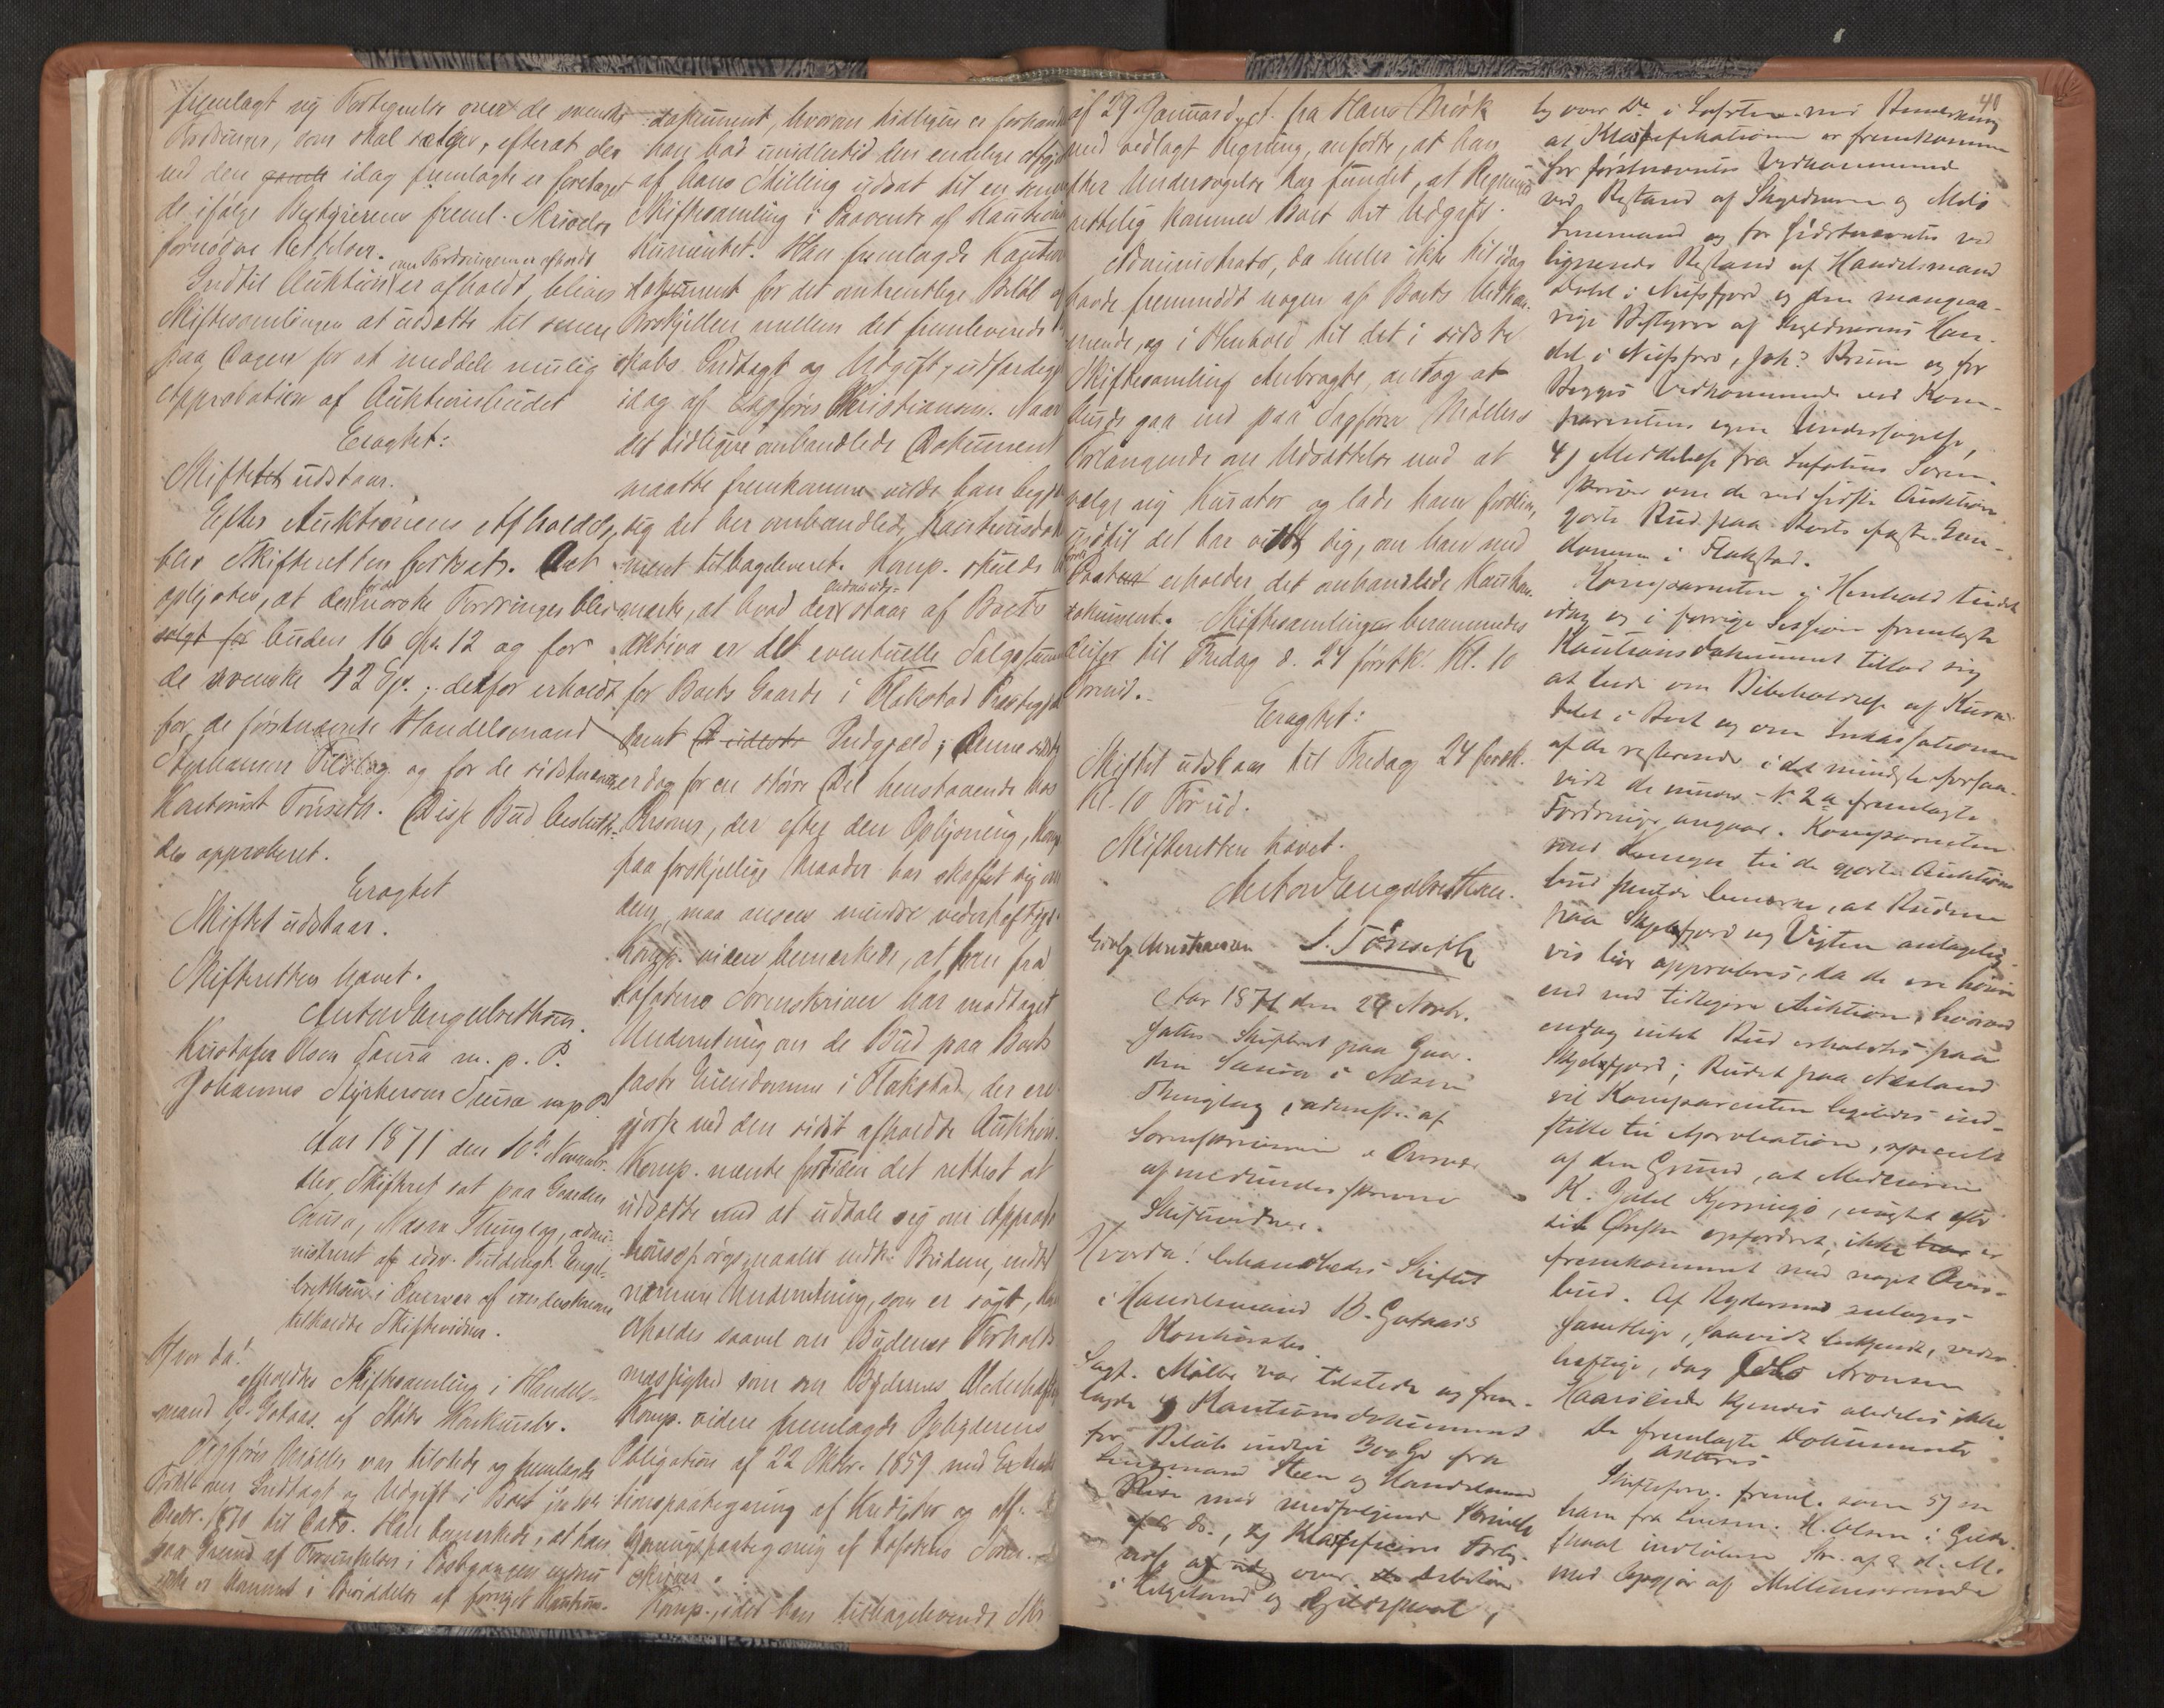 fremlagt ny Fortegnelse over de svenske
Fordringer, som skal sælges, efterat der
ved den gamle idag fremlagte er foretaget
de ifølge Bestyrerens freml. Skrivelse
fornødne Rettelser.
over Fordringerne afholdt
Indtil Auktion er afholdt, bliver
Skiftesamlingen at udsætte til senere
paa Dagen for at meddele mulig
Approbation af Auktionsbudet
Eragtet:
Skiftet udstaar.
Efter Auktionens Afholdelse
blev Skifteretten fortsat. Det
oplystes, at der for de norske Fordringer blev
solgt for buden 16 Spd. 12 og for
de svenske 42 Spd.; derfor erholdt
for de førstnævnte Handelsmand
Styrhansen Tilslag og for de sidstnævnte
Kontorist Tønseth. Disse Bud beslutte-
des approberet.
Eragtet
Skiftet udstaar.
Skifteretten hævet.
Anton Engelbrethsen.
Kristofer Olsen Saura m. p. P.
Johannes Styrkersen Saura m p P
Aar 1871 den 10de Novembr.
blev Skifteret sat paa Gaarden
Saura, Næsne Thinglag, admi-
nistreret af edsv. Fuldmægt. Engel-
brethsen i Overvær af underskrevne
tilkaldte Skiftevidner.
Hvor da!
afholdtes Skiftesamling i Handels-
mand B. Gotaas. af Støtt Konkursbo.
Sagfører Møller var tilstede og fremlagde
over Indtægt og Udgift i Boet
Decbr. 1870 til Dato. Han bemærkede, at han
paa Grund af i Postgangen endnu
ikke er kommet i Besiddelse af forrige Kautions-
dokument, hvorom tidligere er forhandlet
han bad imidlertid den endelige Afgjørelse
af hans Stilling udsat til en senere
Skiftesamling i Paavente af Kautions
kumentet. Han fremlagde Kautions
dokument for det omtrentlige Beløb af
Forskjellen mellem det fremlevende
skabs Indtægt og Udgift, udfærdiget
idag af Sagfører Kristiansen. Naar
det tidligere omhandlede Dokument
maatte fremkomme vilde han begjære
sig det her omhandlede Kautionsdoku
ment tilbageleveret. Komp. skulde be
mærke, at hvad der endnu ud- staar af Boets
Aktiva er det eventuelle Salgssum
for Boets Gaarde i Flakstad Præstegjæld
samt udlæste Indgjæld; Denne sidste
er dog for en større Del henstaaende hos
Personer, der efter den Oplysning, Komp.
paa forskjellige Maader har skaffet sig om
dem, maa ansees mindre vederhæftige.
Komp. videre bemærkede, at han fra
Lofotens Sorenskriver har modtaget
Underretning om de Bud paa Boets
faste Eiendomme i Flakstad, der ere
gjorte ved den sidst afholdte Auktion.
Komp. nævnte fortiden det rettest at
udsætte med at udtale sig om Approba
tionsspørgsmaalet indtil
nærmere Underretning, som er søgt,
holdes saavel om Budenes Forholds
mæssighed som om Bydernes Vederhæftig
Komp. videre fremlagde Opbyderens
Obligation af 22 Oktbr. 1859 med Extrada
tionspaategning af Kreditor og
gaaningspaategning af Lofotens Soren-
skriver.
Komp., idet han tilbageleverede Skr.
af 29 Januard. d. A. fra Hans Mørk
med vedlagt Regning, anførte, at han
efter Undersøgelse har fundet, at Regning
rettelig kommer Boet til Udgift.
Administrator, da heller ikke til idag
havde fremmødt nogen af Boets Vedkom-
mende, og i Henhold til det i sidste
Skiftesamling Anbragte, antog at
burde gaa ind paa Sagfører Møllers
Forlangende om Udsættelse med at
vælge ny Kurator og lade ham fortsætte,
indtil det har vist sig, om han med
Posten erholder det omhandlede Kautions-
dokument. Skiftesamling berammedes
derfor til Fredag d. 24 førstk. Kl. 10
Formid.
Eragtet:
Skiftet udstaar til Fredag 24 førstk.
Kl. 10 Formd.
Skifteretten hævet.
Anton Engelbrethsen.
Christiansen S. Tönseth
Aar 1871 den 24 Novbr.
sattes Skifteret paa Gaar-
den Saura i Næsne
Thinglag, admstr. af
Sorenskriveren i Overvær
af medunderskrevne
Skiftevidner.
Hvorda! behandledes Skiftet
i Handelsmand B. Gotaas's
Konkursbo.
Sagf. Møller var tilstede og frem-
lagde 1) Kautionsdokument
for Beløb indtil 300 Spd fra
Lensmand Steen og Handelsmand
med medfølgende Skrivelse
af 8 ds., Klassificeret Forteg-
nelse over Debitorer
i Helgeland og Gildeskaal,
48
og over Do i Lofoten med Bemærkning
at Klassifikationen er fremkommen
for førstnævntes Vedkommende
ved Bistand af Skyldneren og Melø
Lensmand og for sidstnævntes ved
lignende Bistand af Handelsmand
Dahl i Nusfjord og den mangeaa-
rige Bestyrer af Skyldnerens Han-
del i Nusfjord, Joh? Bruun og for
Begges Vedkommende ved Kom-
parentens egen Undersøgelse,
4) Meddelelse fra Lofotens Soren-
skriver om de ved sidste Auktion
gjorte Bud paa Boets faste Ejen-
domme i Flakstad.
Komparenten i Henhold til det
idag og i forrige Session fremlagte
Kautionsdokument tillod sig
at bede om Bibeholdelse af Kura-
telet i Boet og om Inkassationen
af de resterende i det mindste forsaa-
vidt de under No 2a fremlagte
Fordringer angaar. Komparenten
med Hensyn til de gjorte Auktions
bud skulde bemærke, at Budene
paa Skjelfjord og Vigten antagelig-
vis bør approberes, da de ere høiere
end ved tidligere Auktion, hvorved
endog intet Bud erholdtes paa
Skjelfjord; Budet paa Næsland
vil Komparenten ligeledes ind-
stille til Approbation, specielt
af den Grund, at Medeieren
K. Zahl Kjerringø, uagtet efter
sit Ønske opfordret, ikke er
fremkommet med noget Over-
bud. Af Byderne antages
samtlige, saavidt bekjendt, veder-
hæftige, dog Aronsen
kjendes aldeles ikke.
De fremlagte Dokumenter
akteres
Skiftesforv. freml. som 5) en
ham fra Lensm. H. Olsen i Gilde-
skaal indløben Skr. af 8 d. M.
med Opgjør af Mellemværende